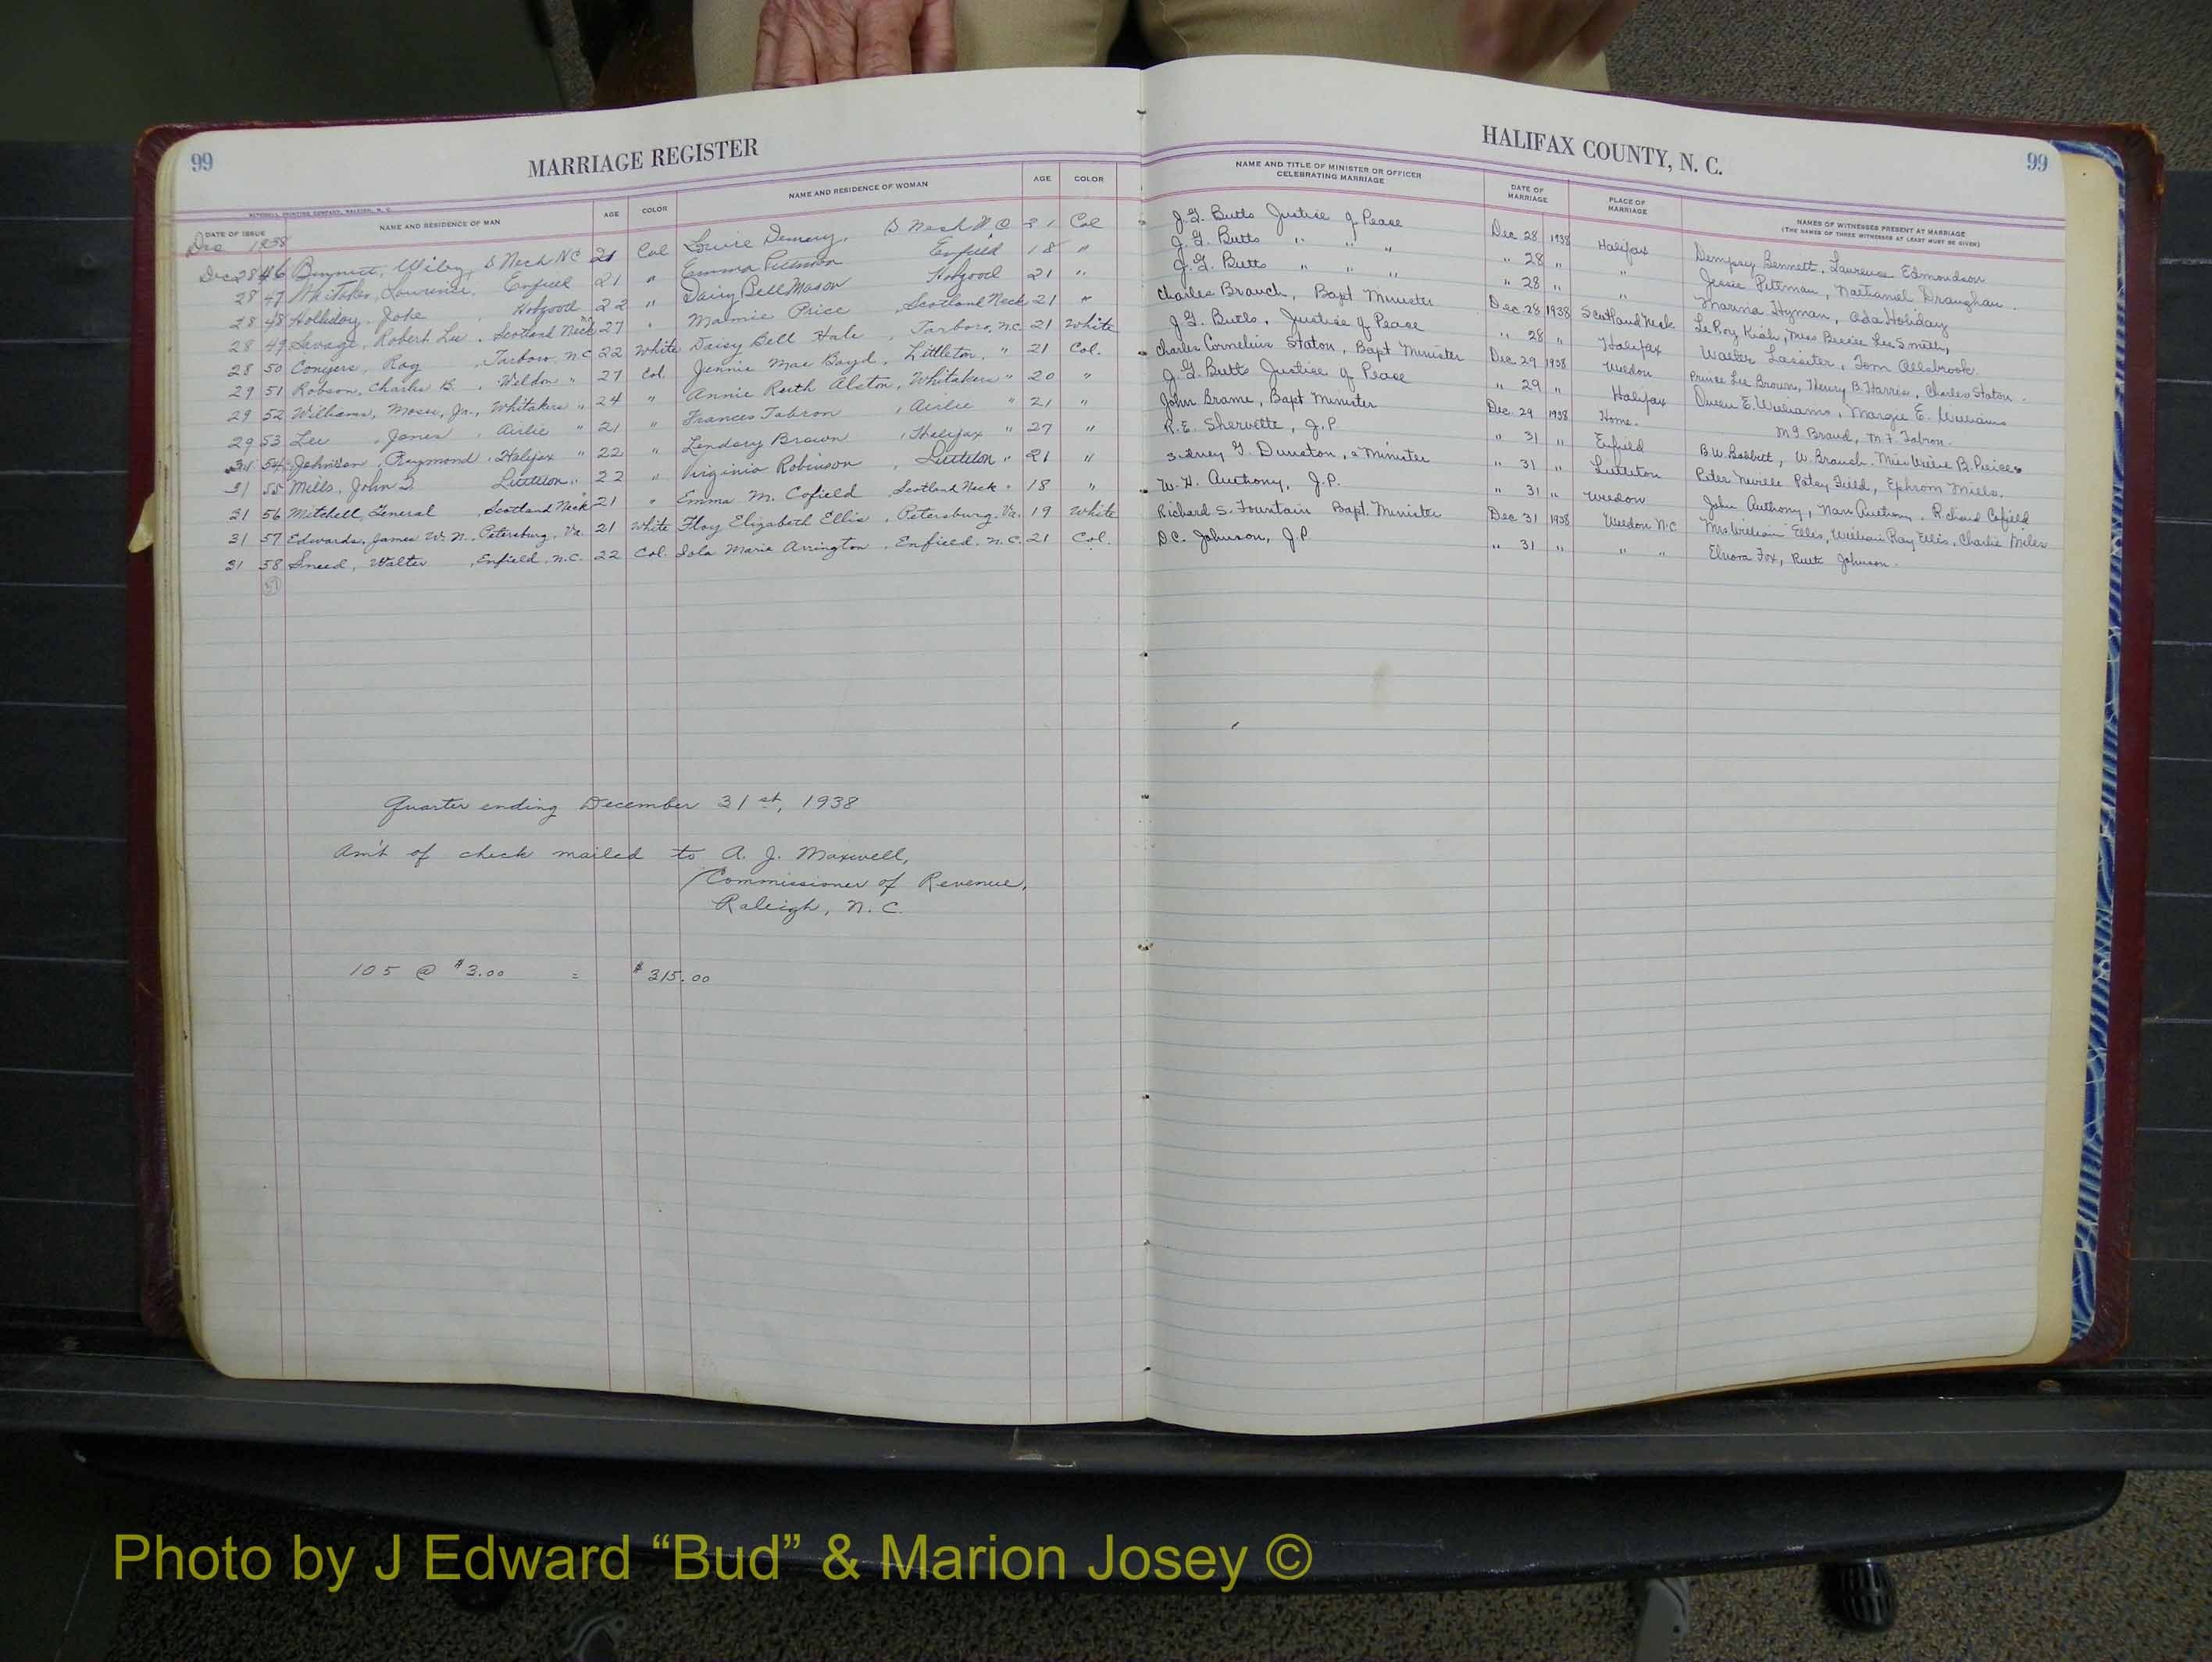 99 MARRIAGE REGISTER
MITCHELL PRINTING COMPANY, RALEIGH, N. C.
DATE OF ISSUE NAME AND RESIDENCE OF MAN AGE COLOR NAME AND RESIDENCE OF WOMAN AGE COLOR
Dec 1938
Dec 28 46 Bennett, Wiley, S Neck NC 21 Col Louise Demery, S Neck N.C 21 Col
28 47 Whitaker, Lawrence, Enfield 21 " Emma Pittman Enfield 18 "
28 48 Holliday, Jobe, Hobgood 22 " Daisy Bell Mason Hobgood 21 "
28 49 Savage, Robert Lee, Scotland Neck 27 " Mamie Price, Scotland Neck 21 "
28 50 Conyers, Roy, Tarboro, N.C 22 White Daisy Bell Hale, Tarboro, N.C. 21 White
29 51 Robson, Charles B., Weldon " 27 Col. Jennie Mae Boyd, Littleton, " 21 Col.
29 52 Williams, Moses, Jr., Whitakers " 24 " Annie Ruth Alston, Whitakers " 20 "
29 53 Lee, James, Airlie " 21 " Frances Tabron, Airlie " 21 "
31 54 Johnson, Raymond, Halifax " 22 " Lendory Brown, Halifax " 27 "
31 55 Mills, John Littleton " 22 " Virginia Robinson, Littleton " 21 "
31 56 Mitchell, General, Scotland Neck 21 " Emma M. Cofield, Scotland Neck " 18 "
31 57 Edwards, James W. N., Petersburg, Va. 21 White Floy Elizabeth Ellis, Petersburg, Va. 19 White
31 58 Sneed, Walter, Enfield, N.C. 22 Col. Iola Maria Arrington, Enfield, N.C. 21 Col.
Quarter ending December 31st, 1938
Am't of check mailed to A. J. Maxwell,
Commissioner of Revenue,
Raleigh, N. C.
105 @ $3.00 = $315.00
HALIFAX COUNTY, N. C. 99
NAME AND TITLE OF MINISTER OR OFFICER CELEBRATING MARRIAGE DATE OF MARRIAGE PLACE OF MARRIAGE NAMES OF WITNESSES PRESENT AT MARRIAGE
(THE NAMES OF THREE WITNESSES AT LEAST MUST BE GIVEN)
J. G. Butts Justice of Peace Dec 28 1938 Halifax Dempsey Bennett, Laurence Edmondson
J. G. Butts " " " " 28 " " Jessie Pittman, Nathaniel Draughan
J. G. Butts " " " " 28 " " Marina Hyman, Ada Holiday
Charles Branch, Bapt Minister Dec 28 1938 Scotland Neck LeRoy Kiah, Miss Bessie Lee Smith,
J. G. Butts, Justice of Peace " 28 " Halifax Walter Lassiter, Tom Allsbrook
Charles Cornelius Staton, Bapt Minister Dec 29 1938 Weldon Prince Lee Brown, Henry B. Harris, Charles Staton.
J. G. Butts Justice of Peace " 29 " Halifax Owen E. Williams, Margie E. Williams
John Brame, Bapt Minister Dec. 29 1938 Home. M F. Tabron.
R. E. Shervette, J. P. " 31 " Enfield B. W. Babbitt, W. Branch.
Sidney G. Dunston, a Minister " 31 " Littleton Peter Neville Ephrom Mills.
W. H. Anthony, J. P. " 31 " Weldon John Anthony, Nan Anthony, Richard Cofield
Richard S. Fountain Bapt. Minister Dec 31 1938 Weldon N.C. Mrs. William Ellis, William Ray Ellis, Charlie Miles
D. C. Johnson, J. P. " 31 " " " Elnora Fox, Ruth Johnson.
Photo by J Edward “Bud” & Marion Josey ©